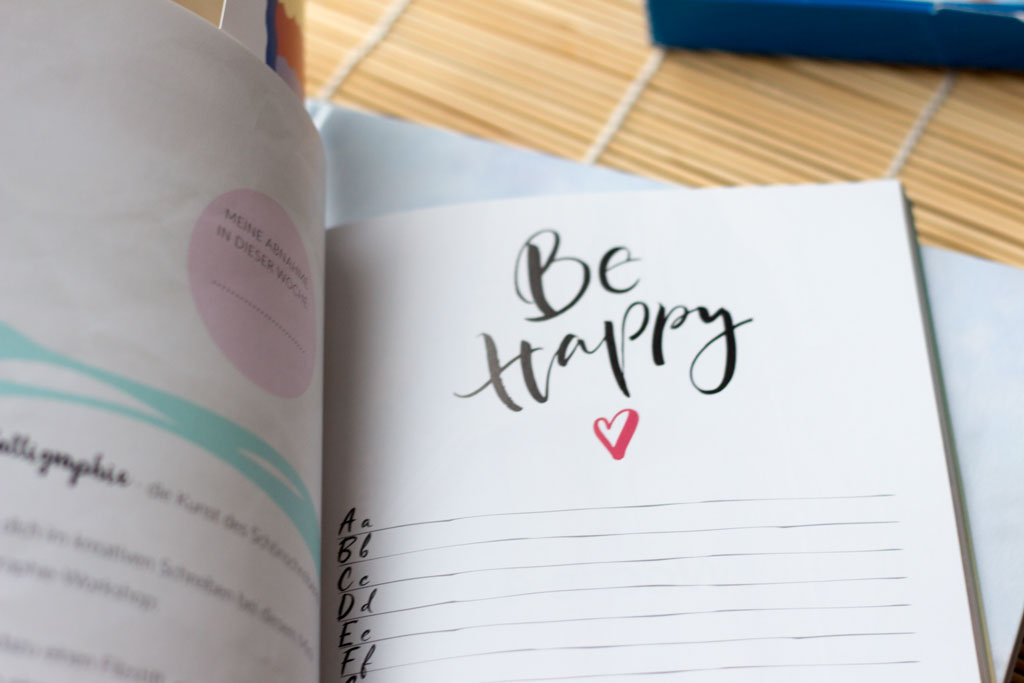 MEINE ABNAHME
IN DIESER WOCHE
Kalligraphie - die Kunst des Schönschreibens
dich im kreativen Schreiben bei diesem
Workshop
dazu einen
Be
Happy
A a
B b
C c
D d
E e
F f